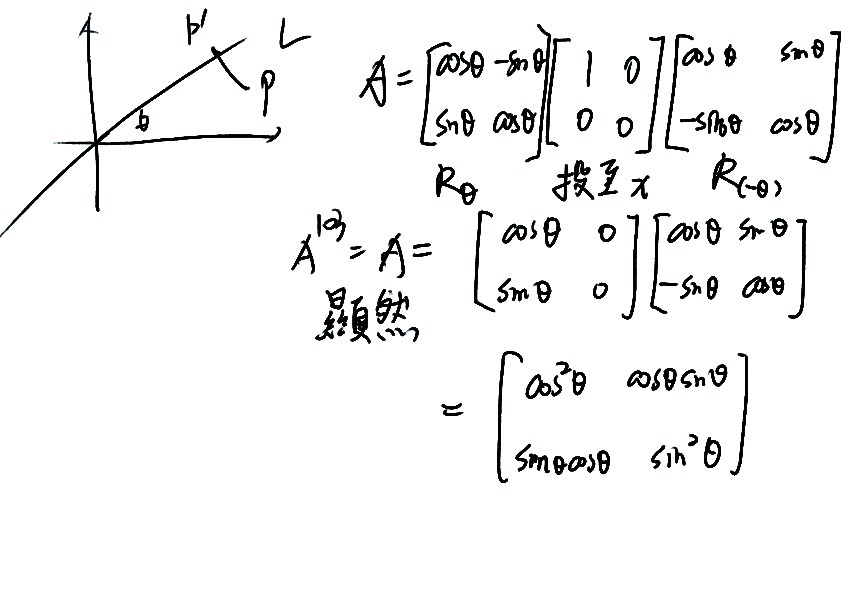 P' L
P
θ
A = [cosθ -sinθ; sinθ cosθ] [1 0; 0 0] [cosθ sinθ; -sinθ cosθ]
Rθ 投至x R(-θ)
A^103 = A = [cosθ 0; sinθ 0] [cosθ sinθ; -sinθ cosθ]
顯然
= [cos²θ cosθsinθ; sinθcosθ sin²θ]